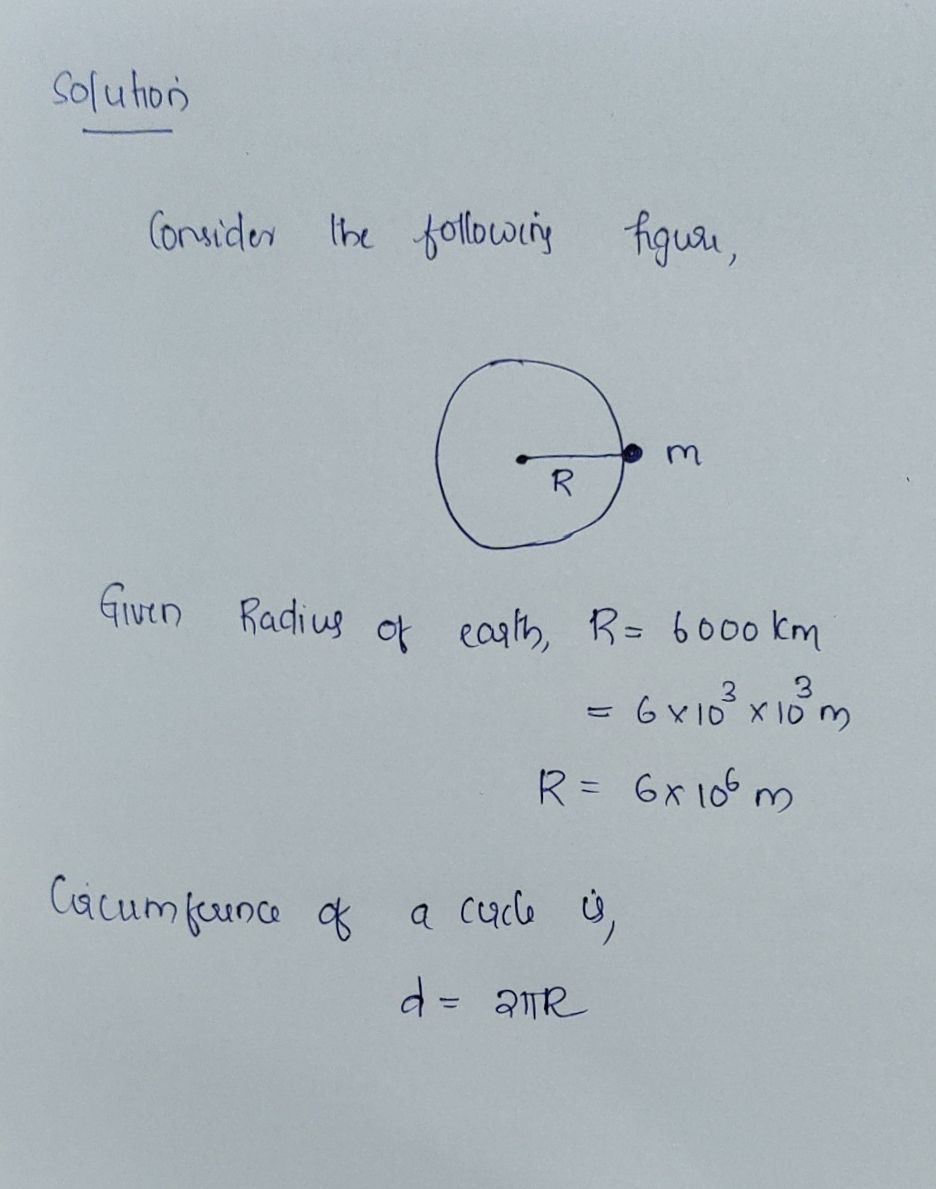 Solution
Consider the following figure,
m
R
Given Radius of earth, R = 6000 km
= 6 × 10³ × 10³ m
R = 6 × 10⁶ m
Circumference of a circle is,
d = 2πR